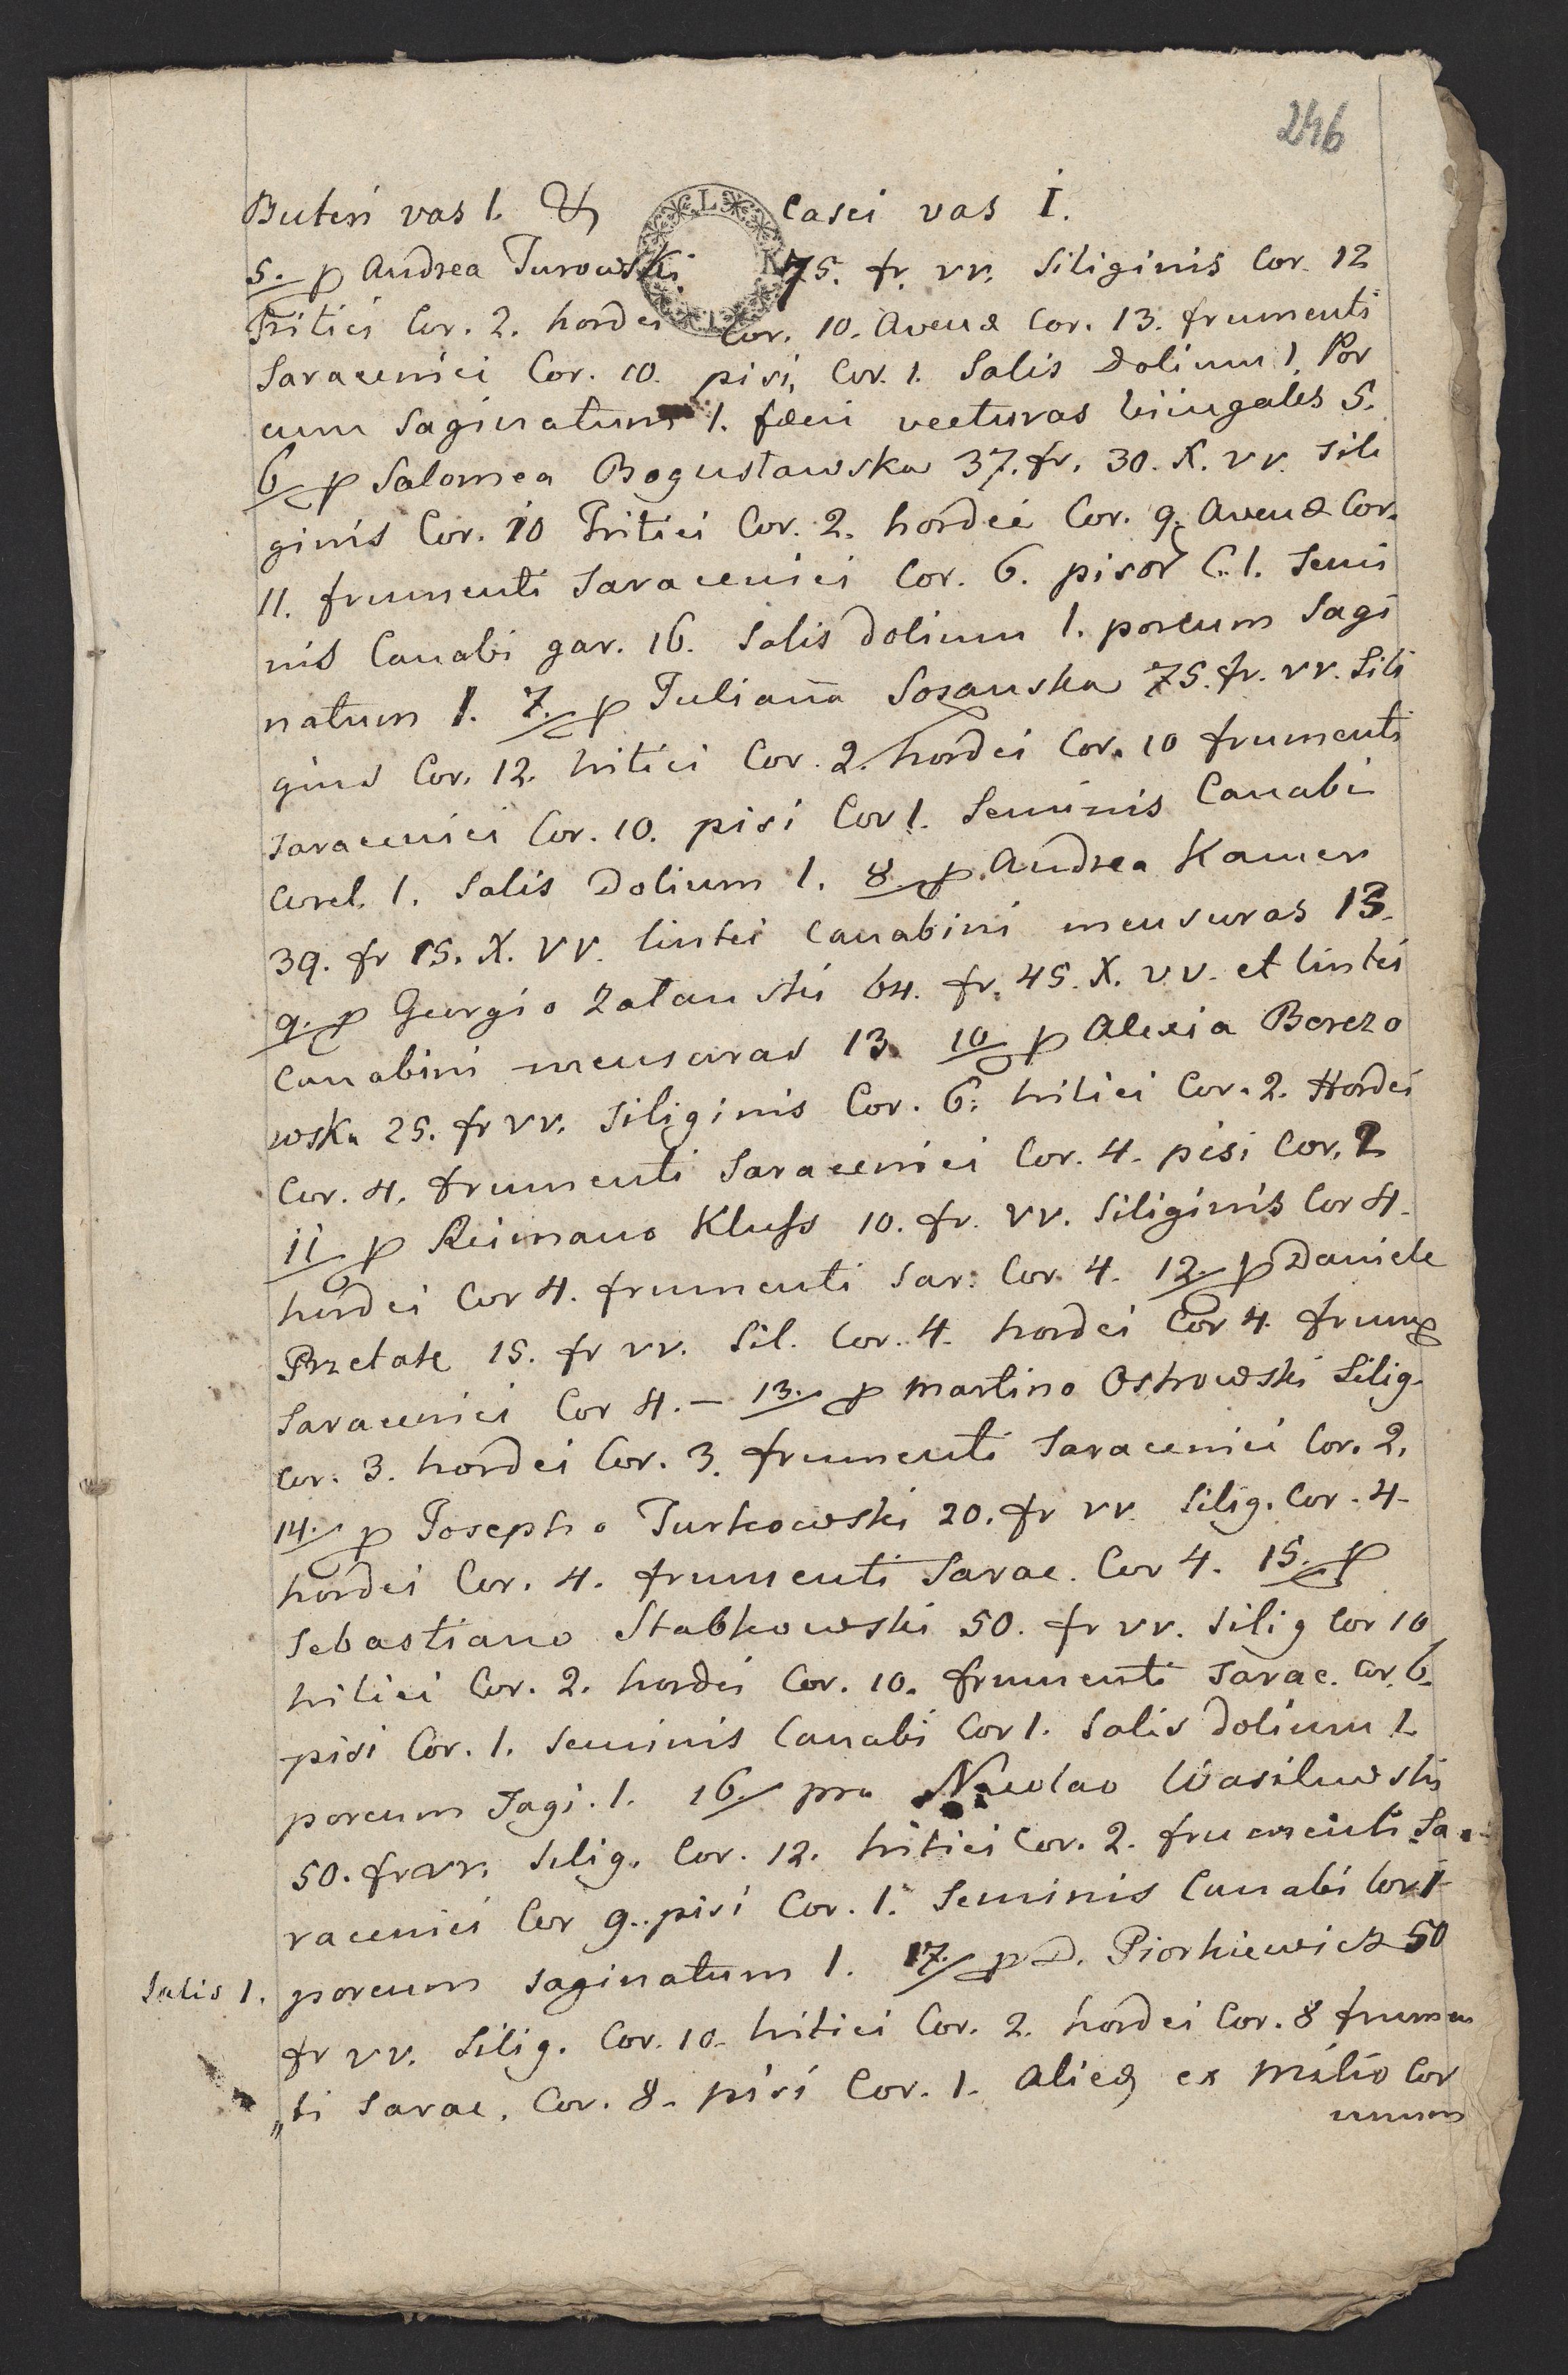 246
Buteri vas 1. & Casei vas I.
5. p Andrea Turowski 75. fr. vv. Siliginis Cor. 12
Tritici Cor. 2. hordei Cor. 10. Avenæ Cor. 13. frumenti
Saracenici Cor. 10. pisi, Cor. 1. Salis Dolium 1. Por
cum Saginatum 1. fæni vecturas biiugales 5.
6 p Salomea Bogusławska 37. fr. 30. X. vv. Sili
ginis Cor. 10 Tritici Cor. 2. hordei Cor. 9. Avenæ Cor.
11. frumenti Saracenici Cor. 6. pisor C. 1. Semi
nis Canabi gar. 16. Salis dolium 1. porcum Sagi
natum 1. 7. p Julianna Sozanska 75. fr. vv. Sili
ginis Cor. 12. tritici Cor. 2. hordei Cor. 10 frumenti
Saracenici Cor. 10. pisi Cor 1. Seminis Canabi
Coret. 1. Salis Dolium 1. 8 p Andrea Kamen
39. fr 15. X. vv. lintei Canabini mensuras 13.
9. p Georgio Załanski 64. fr. 45. X. vv. et lintei
Canabini mensuras 13. 10 p Alexia Berezo
wska 25. fr vv. Siliginis Cor. 6. tritici Cor. 2. Hordei
Cor. 4. frumenti Saracenici Cor. 4. pisi Cor. 2
11 p Reimano Kluss 10. fr. vv. Siliginis Cor 4.
hordei Cor 4. frumenti Sar. Cor. 4. 12. p Daniele
Przetak 15. fr vv. Sil. Cor. 4. hordei Cor 4. frum
Saracenici Cor 4. – 13. p Martino Ostrowski Silig.
Cor. 3. hordei Cor. 3. frumenti Saracenici Cor. 2.
14. p Josepho Turkowski 20. fr vv. Silig. Cor. 4.
hordei Cor. 4. frumenti Sarac. Cor 4. 15. p
Sebastiano Stabkowski 50. fr vv. Silig Cor 10
tritici Cor. 2. hordei Cor. 10. frumenti Sarac. Cor. 6.
pisi Cor. 1. Seminis Canabi Cor 1. Salis dolium 1.
porcum Sagi. 1. 16. pro Nicolao Wasilewski
50. fr vv. Silig. Cor. 12. tritici Cor. 2. frumenti Sa
racenici Cor 9. pisi Cor. 1. Seminis Canabi Cor 1
Salis 1. porcum Saginatum 1. 17. p D. Piorkiewicz 50
fr vv. Silig. Cor. 10. tritici Cor. 2. hordei Cor. 8 frumen
„ti Sarac. Cor. 8. pisi Cor. 1. Alicæ ex milio Cor
unum